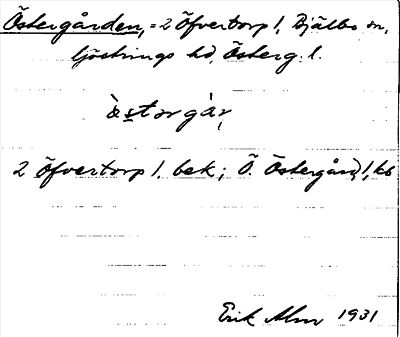 Östergården, = 2 Öfvertorp 1, Bjälbo sn,
Göstrings hd, Österg. l.
2 Öfvertorp 1. bek; Ö. Östergård, 1, kb
Erik Alm 1931